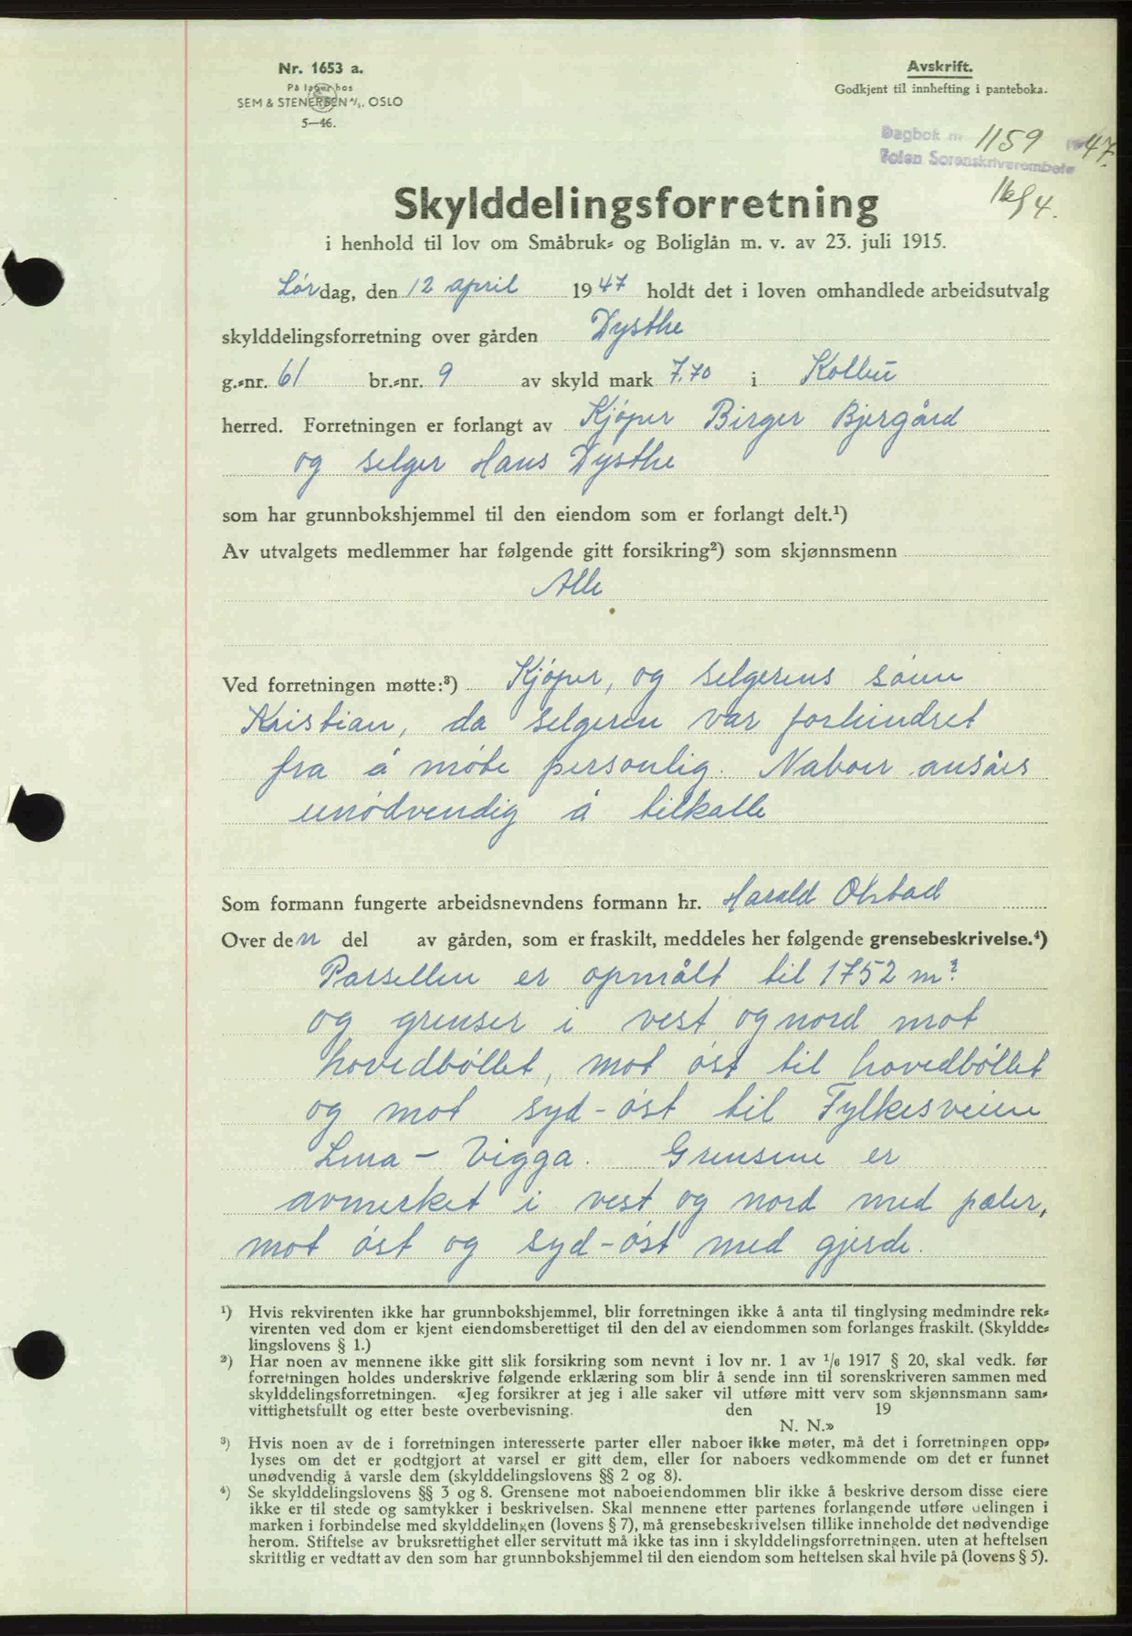 Nr. 1653 a.
På lager hos
SEM & STENERSEN A/S, OSLO
5—46.
Avskrift.
Godkjent til innhefting i panteboka.
Dagbok nr. 1159 1947.
Toten Sorenskriverembete
16/4.
Skylddelingsforretning
i henhold til lov om Småbruk- og Boliglån m. v. av 23. juli 1915.
Lørdag, den 12 april 1947 holdt det i loven omhandlede arbeidsutvalg
skylddelingsforretning over gården Dysthe
g.-nr. 61 br.-nr. 9 av skyld mark 7.70 i Kolbu
herred. Forretningen er forlangt av Kjøper Birger Bjergård
og selger Hans Dysthe
som har grunnbokshjemmel til den eiendom som er forlangt delt.¹)
Av utvalgets medlemmer har følgende gitt forsikring²) som skjønnsmenn
Alle
Ved forretningen møtte:³) Kjøper, og selgerens sønn
Kristian, da selgeren var forhindret
fra å møte personlig. Naboer ansåes
unødvendig å tilkalle
Som formann fungerte arbeidsnevndens formann hr. Harald
Over den del av gården, som er fraskilt, meddeles her følgende grensebeskrivelse.⁴)
Parsellen er opmålt til 1752 m²
og grenser i vest og nord mot
hovedbøllet, mot øst til hovedbøllet
og mot syd-øst til Fylkesveien
Lena - Vigga. Grensene er
avmerket i vest og nord med pæler,
mot øst og syd-øst med gjerde.
¹) Hvis rekvirenten ikke har grunnbokshjemmel, blir forretningen ikke å anta til tinglysing medmindre rek-
virenten ved dom er kjent eiendomsberettiget til den del av eiendommen som forlanges fraskilt. (Skyldde-
lingslovens § 1.)
²) Har noen av mennene ikke gitt slik forsikring som nevnt i lov nr. 1 av 1/6 1917 § 20, skal vedk. før
forretningen holdes underskrive følgende erklæring som blir å sende inn til sorenskriveren sammen med
skylddelingsforretningen. «Jeg forsikrer at jeg i alle saker vil utføre mitt verv som skjønnsmann sam-
vittighetsfullt og etter beste overbevisning. den 19
N. N.»
³) Hvis noen av de i forretningen interesserte parter eller naboer ikke møter, må det i forretningen opp-
lyses om det er godtgjort at varsel er gitt dem, eller for naboers vedkommende om det er funnet
unødvendig å varsle dem (skylddelingslovens §§ 2 og 8).
⁴) Se skylddelingslovens §§ 3 og 8. Grensene mot naboeiendommen blir ikke å beskrive dersom disse eiere
ikke er til stede og samtykker i beskrivelsen. Skal mennene etter partenes forlangende utføre delingen i
marken i forbindelse med skylddelingen (lovens § 7), må grensebeskrivelsen tillike inneholde det nødvendige
herom. Stiftelse av bruksrettighet eller servitutt må ikke tas inn i skylddelingsforretningen, uten at heftelsen
skrittlig er vedtatt av den som har grunnbokshjemmel til den eiendom som heftelsen skal hvile på (lovens § 5).